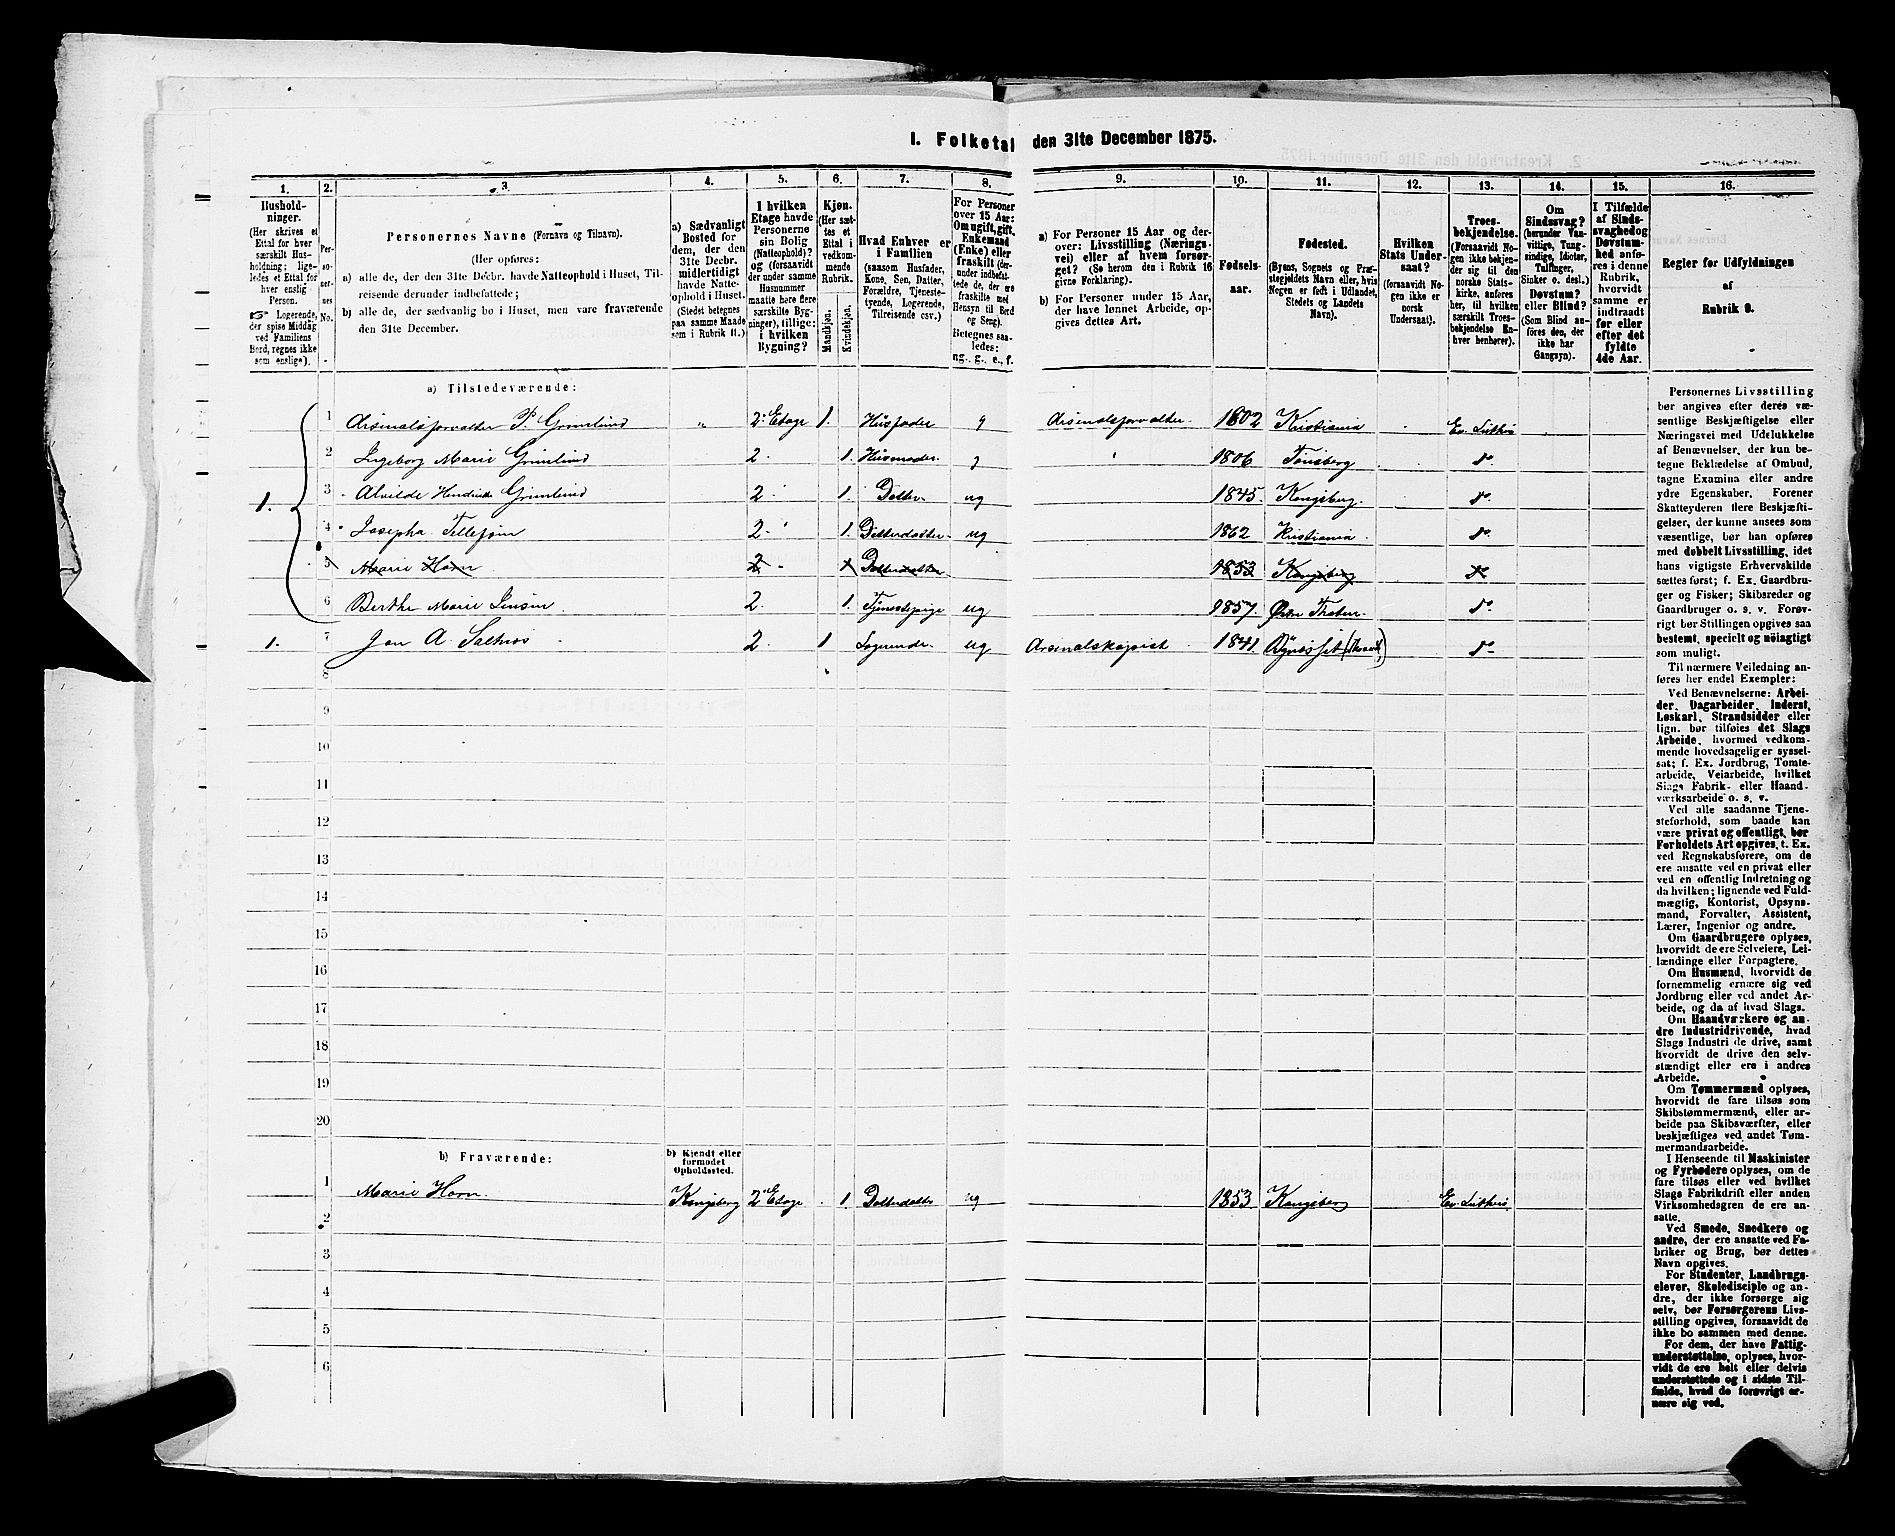 I. Folketal den 31te December 1875.
1. 2. 3. 4. 5. 6. 7. 8. 9. 10. 11. 12. 13. 14. 15. 16.
Hushold-
ninger.
(Her skrives et
Ettal for hver
særskilt Hus-
holdning; lige-
ledes et Ettal for
hver enslig
Person.
Logerende,
der spise Middag
ved Familiens
Bord, regnes ikke
som enslige).
Per-
so-
ner-
nes
No.
Personernes Navne (Fornavn og Tilnavn).
(Her opføres:
a) alle de, der den 31te Decbr. havde Natteophold i Huset, Til-
reisende derunder indbefattede;
b) alle de, der sædvanlig bo i Huset, men vare fraværende
den 31te December.
a) Sædvanligt
Bosted for
dem, der den
31te Decbr.
midlertidigt
havde Natte-
ophold i Huset.
(Stedet betegnes
paa samme Maade
som i Rubrik 11.)
I hvilken
Etage havde
Personerne
sin Bolig
(Natteophold)?
og (forsaavidt
der under samme
Husnummer
maatte høre flere
særskilte Byg-
ninger), tillige:
i hvilken
Bygning?
Kjøn.
(Her sæt-
tes et
Ettal i
vedkom-
mende
Rubrik.
Mandkjøn.
Kvindekjøn.
Hvad Enhver er
i Familien
(saasom Husfader,
Kone, Søn, Datter,
Forældre, Tjeneste-
tyende, Logerende,
Tilreisende osv.)
For Personer
over 15 Aar:
Om ugift, gift,
Enkemand
(Enke) eller
fraskilt (der-
under indbefat-
tede de, der ere
fraskilte med
Hensyn til Bord
og Seng).
Betegnes saa-
ledes:
ug., g., e., f.
a) For Personer 15 Aar og der-
over: Livsstilling (Nærings-
vei) eller af hvem forsør-
get? (Se herom den i Rubrik 16
givne Forklaring).
b) For Personer under 15 Aar,
der have lønnet Arbeide, op-
gives dettes Art.
Fødsels-
aar.
Fødested.
(Byens, Sognets og Præ-
stegjeldets Navn eller, hvis
Nogen er født i Udlandet,
Stedets og Landets
Navn).
Hvilken
Stats Under-
saat?
(forsaavidt No-
gen ikke er
norsk
Undersaat).
Troes-
bekjendelse.
(Forsaavidt No-
gen ikke bekjen-
der sig til den
norske Stats-
kirke, anføres
her, til hvilken
særskilt Troes-
bekjendelse En-
hver henhører).
Om
Sindssvag?
(herunder Van-
vittige, Tung-
sindige, Idioter,
Tullinger,
Sinker o. desl.)
Døvstum?
eller Blind?
(Som Blind an-
føres den, der
ikke har
Gangsyn).
I Tilfælde
af Sinds-
svaghed og
Døvstum-
hed anfø-
res i denne
Rubrik,
hvorvidt
samme er
indtraadt
før eller
efter det
fyldte
4de Aar.
Regler for Udfyldningen
af
Rubrik 9.
a) Tilstedeværende:
1. 1 Arsenalsforvalter P. Grimlund " 2. Etage 1. Husfader g Arsenalsforvalter 1802 Kristiania Ev. Luthrs
2 Ingeborg Marie Grimlund 2 1. Husmoder g 1806 Tønsberg do
3 Alvilde Grimlund 2 1. Datter ug 1845. Kongsberg do
4 Josepha Tellefsen 2 1. Datterdatter ug 1862 Kristiania do
5 Marie Horn 2 1 Datterdatter 1853 Kongsberg do
6 Berthe Marie Jensen 2 1. Tjenestepige ug 1857. Thoten do
1. 7 Jon A. Saltnes 2 1 Logerende ug Arsenalskopist 1841 do
8
9
10
11
12
13
14
15
16
17
18
19
20
b) Fraværende:
b) Kjendt eller
formodet
Opholdssted.
1 Marie Horn Kongsberg 2 Etage 1 Datterdatter ug 1853 Kongsberg Ev. Luthrs
2
3
4
5
6
Personernes Livsstilling
bør angives efter deres væ-
sentlige Beskjæftigelse eller
Næringsvei med Udelukkelse
af Benævnelser, der kun be-
tegne Beklædelse af Ombud,
tagne Examina eller andre
ydre Egenskaber. Forener
Skatteyderen flere Beskjæfti-
gelser, der kunne ansees som
væsentlige, bør han opføres
med dobbelt Livsstilling, idet
hans vigtigste Erhvervskilde
sættes først; f. Ex. Gaardbru-
ger og Fisker; Skibsreder og
Gaardbruger o. s. v. Forøv-
rigt bør Stillingen opgives saa
bestemt, specielt og nöiagtigt
som muligt.
Til nærmere Veiledning an-
føres her endel Exempler:
Ved Benævnelserne: Arbei-
der, Dagarbeider, Inderst,
Løskarl, Strandsidder eller
lign. bør tilføies det Slags
Arbeide, hvormed vedkom-
mende hovedsagelig er syssel-
sat; f. Ex. Jordbrug, Tomte-
arbeide, Veiarbeide, hvilket
Slags Fabrik- eller Haand-
værksarbeide o. s. v.
Ved alle saadanne Tjene-
steforhold, som baade kan
være privat og offentligt, bør
Forholdets Art opgives, t. Ex.
ved Regnskabsførere, om de
ere ansatte ved en privat eller
ved en offentlig Indretning og
da hvilken; lignende ved Fuld-
mægtig, Kontorist, Opsyns-
mand, Forvalter, Assistent,
Lærer, Ingeniør og andre.
Om Gaardbrugere oplyses,
hvorvidt de ere Selveiere, Lei-
lændinge eller Forpagtere.
Om Husmænd, hvorvidt de
fornemmelig ernære sig ved
Jordbrug eller ved andet Ar-
beide, og da af hvad Slags.
Om Haandværkere og an-
dre Industridrivende, hvad
Slags Industri de drive, samt
hvorvidt de drive den selv-
stændigt eller ere i andres
Arbeide.
Om Tømmermænd oplyses,
hvorvidt de fare tilsøs som
Skibstømmermænd, eller ar-
beide paa Skibsværfter, eller
beskjæftiges ved andet Tøm-
mermandsarbeide.
I Henseende til Maskinister
og Fyrbødere oplyses, om de
fare tilsøs eller ved hvilket
Slags Fabrikdrift eller anden
Virksomhedsgren de ere an-
satte.
Ved Smede, Snedkere og
andre, der ere ansatte ved Fa-
briker og Brug, bør dettes
Navn opgives.
For Studenter, Landbrugs-
elever, Skoledisciple og an-
dre, der ikke forsørge sig
selv, bør Forsørgerens Livs-
stilling opgives, forsaavidt de
ikke bo sammen med denne.
For dem, der have Fattig-
understøttelse, oplyses, hvor-
vidt de ere helt eller delvis
understøttede og i sidste Til-
fælde, hvad de forøvrigt er-
nære sig ved.